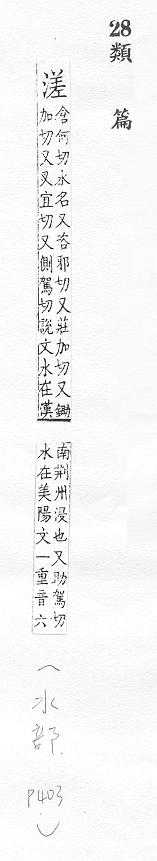 28
類篇
溠
倉何切水名又咨邪切又莊加切又鋤
加切又叉宜切又側駕切說文水在漢
南荆州浸也又助駕切
水在美陽文一重音六
(水部. P403)